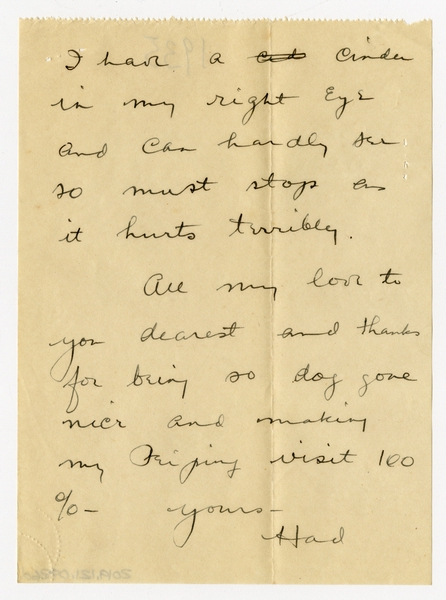 I have a cinder
in my right Eye
and can hardly see
so must stop as
it hurts terribly.
All my love to
you dearest and thanks
for being so dog gone
nice and making
my Peiping visit 100
%- yours-
Had